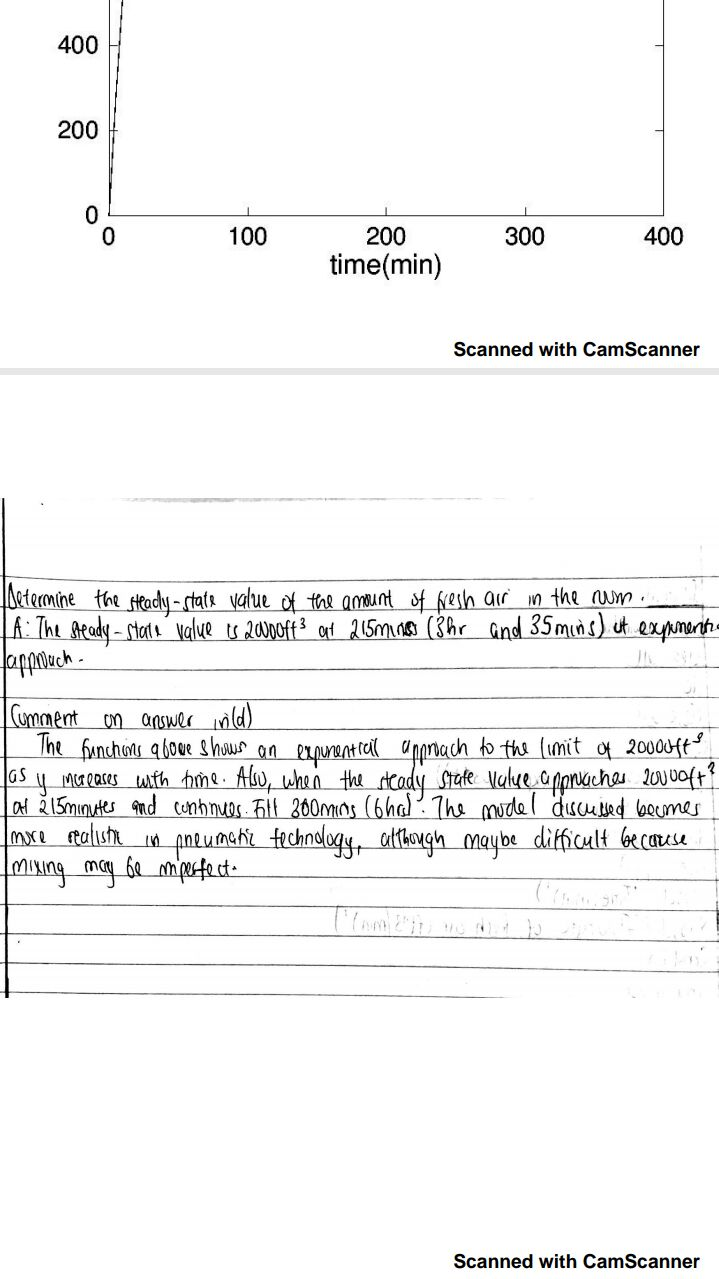 400
200
0
0 100 200 300 400
time(min)
Scanned with CamScanner
Determine the steady-state value of the amount of fresh air in the room.
A: The steady-state value is 20000ft³ at 215mins (3hr and 35mins) it
approach.
Comment on answer in(d)
The functions above shows an exponential approach to the limit of 20000ft³
as y increases with time. Also, when the steady state value approaches 20000ft³
at 215minutes and continues. till 360mins (6hrs). The model discussed becomes
more realistic in pneumatic technology, although maybe difficult because
mixing may be imperfect.
Scanned with CamScanner